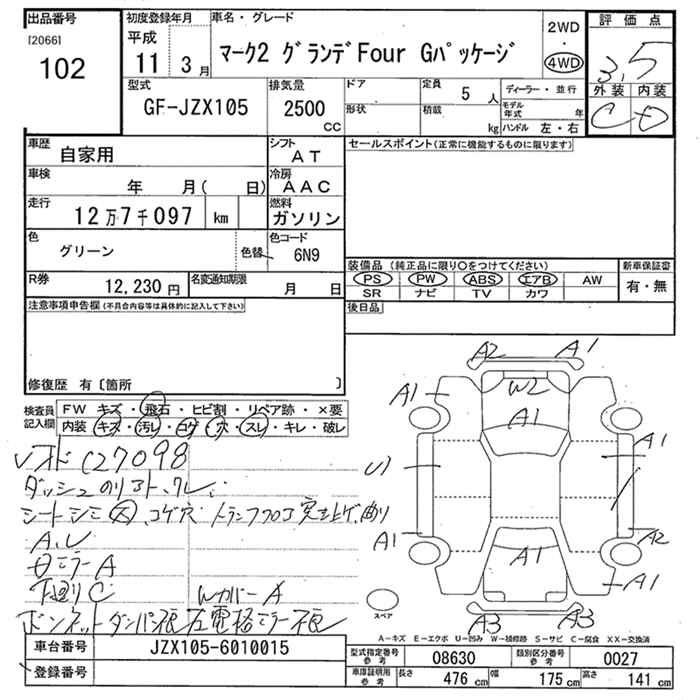 出品番号
[2066]
102
初度登録年月
平成
11 3月
車名・グレード
マーク2 グランデFour Gパッケージ
2WD
・
4WD
評価点
3.5
外装 内装
C D
型式
GF-JZX105
排気量
2500
CC
ドア
形状
定員
5 人
積載
kg
ディーラー・並行
モデル年式 年
ハンドル 左・右
車歴
自家用
シフト
AT
車検
年 月( 日)
冷房
AAC
走行
12万7千097 km
燃料
ガソリン
色
グリーン
色替
色コード
6N9
R券
12,230円
名変通知期限
月 日
セールスポイント(正常に機能するものに限ります)
装備品 (純正品に限り〇をつけてください)
PS PW ABS エアB AW
SR ナビ TV カワ
新車保証書
有・無
後日品
注意事項申告欄(不具合内容等は具体的に記入して下さい)
修復歴 有〔箇所 〕
検査員記入欄
FW キズ・飛石・ヒビ割・リペア跡・×要
内装 キズ・汚レ・コゲ・穴・スレ・キレ・破レ
127098
シートシミ大、コゲ穴 トランクフロア突き上げ、曲り
ミラーA
下廻りC
WカバーA
ボンネットダンパ
左電格ミラー
A2 A1
W2
A1 A1
A1
U
A1 A2
A1
A1
A3 A3
スペア
A-キズ E-エクボ U-凹み W-補修跡 S-サビ C-腐食 XX-交換済
車台番号
JZX105-6010015
登録番号
型式指定番号 参考
08630
類別区分番号 参考
0027
車庫証明用 参考
長さ 476 cm 幅 175 cm 高さ 141 cm